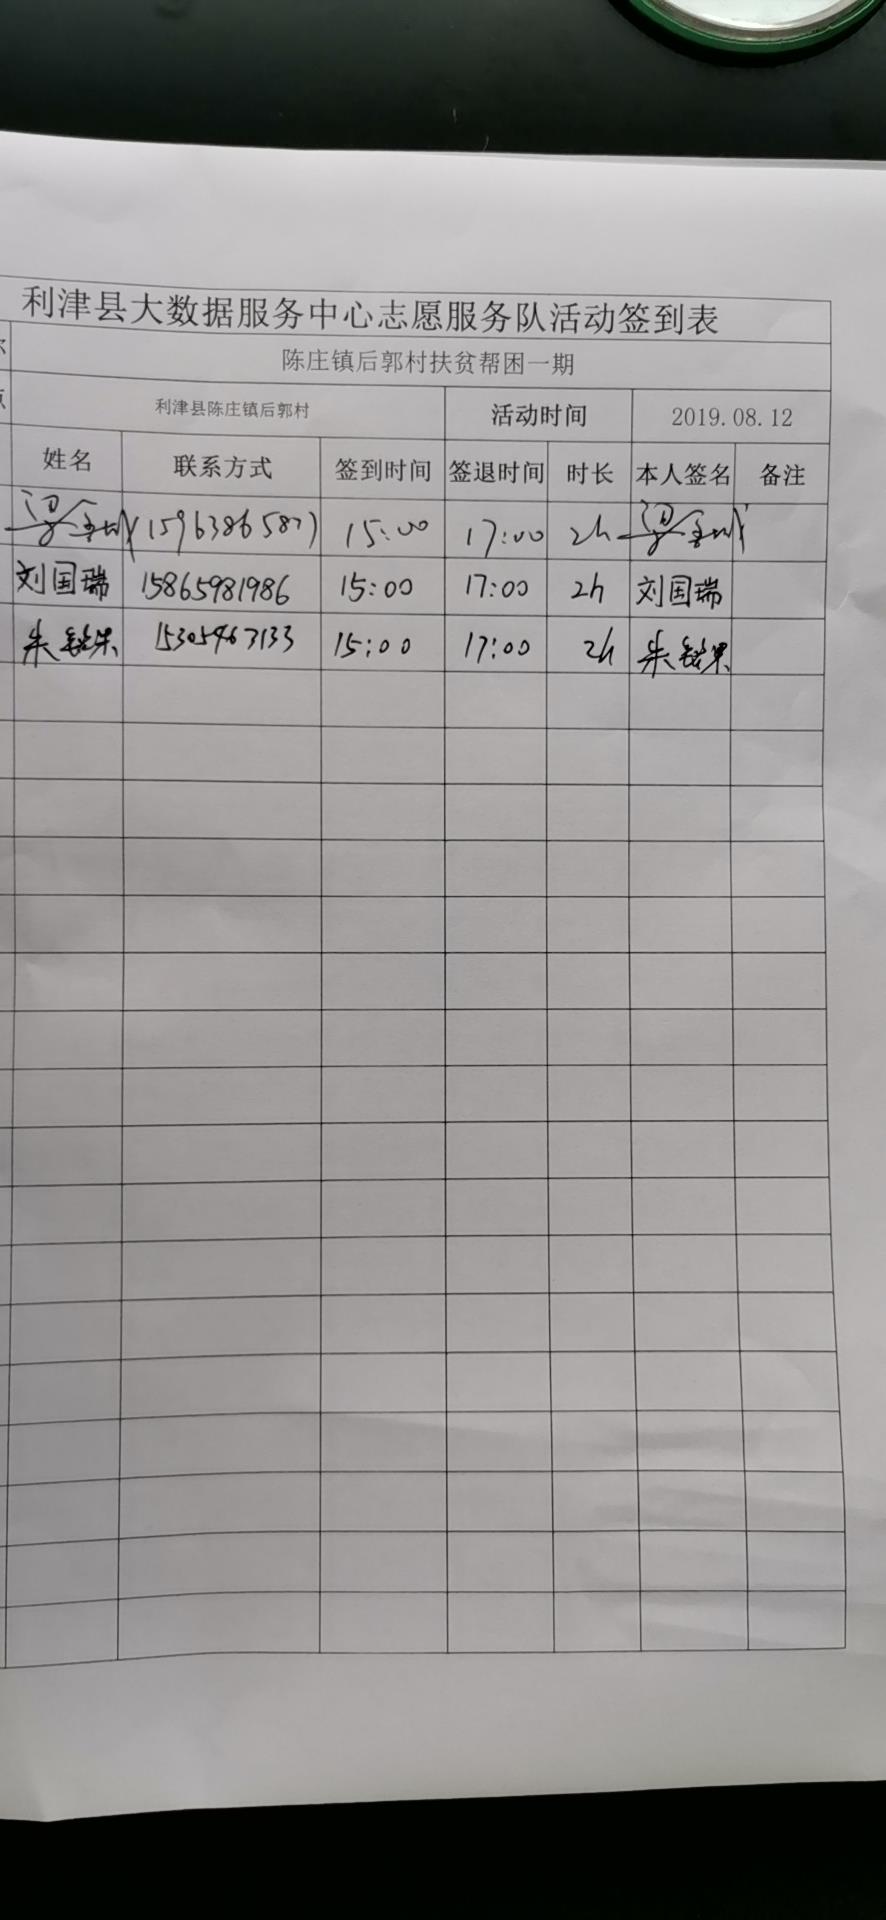 利津县大数据服务中心志愿服务队活动签到表
陈庄镇后郭村扶贫帮困一期
利津县陈庄镇后郭村 活动时间 2019.08.12
姓名 联系方式 签到时间 签退时间 时长 本人签名 备注
15:00 17:00 2h
刘国瑞 15865981986 15:00 17:00 2h 刘国瑞
朱 15305467133 15:00 17:00 2h 朱